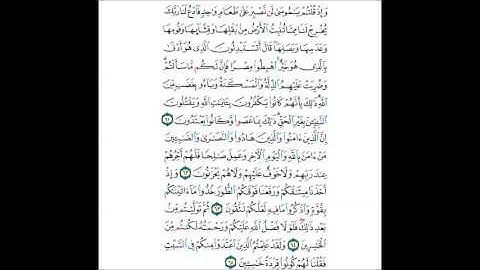 وَإِذْ قُلْتُمْ يَـٰمُوسَىٰ لَن نَّصْبِرَ عَلَىٰ طَعَامٍ وَٰحِدٍ فَٱدْعُ لَنَا رَبَّكَ
يُخْرِجْ لَنَا مِمَّا تُنۢبِتُ ٱلْأَرْضُ مِنۢ بَقْلِهَا وَقِثَّآئِهَا وَفُومِهَا
وَعَدَسِهَا وَبَصَلِهَا قَالَ أَتَسْتَبْدِلُونَ ٱلَّذِى هُوَ أَدْنَىٰ
بِٱلَّذِى هُوَ خَيْرٌ ٱهْبِطُوا۟ مِصْرًا فَإِنَّ لَكُم مَّا سَأَلْتُمْ
وَضُرِبَتْ عَلَيْهِمُ ٱلذِّلَّةُ وَٱلْمَسْكَنَةُ وَبَآءُو بِغَضَبٍ مِّنَ
ٱللَّهِ ذَٰلِكَ بِأَنَّهُمْ كَانُوا۟ يَكْفُرُونَ بِـَٔايَـٰتِ ٱللَّهِ وَيَقْتُلُونَ
ٱلنَّبِيِّـۧنَ بِغَيْرِ ٱلْحَقِّ ذَٰلِكَ بِمَا عَصَوا۟ وَّكَانُوا۟ يَعْتَدُونَ ٦١
إِنَّ ٱلَّذِينَ ءَامَنُوا۟ وَٱلَّذِينَ هَادُوا۟ وَٱلنَّصَـٰرَىٰ وَٱلصَّـٰبِـِٔينَ
مَنْ ءَامَنَ بِٱللَّهِ وَٱلْيَوْمِ ٱلْـَٔاخِرِ وَعَمِلَ صَـٰلِحًا فَلَهُمْ أَجْرُهُمْ
عِندَ رَبِّهِمْ وَلَا خَوْفٌ عَلَيْهِمْ وَلَا هُمْ يَحْزَنُونَ ٦٢ وَإِذْ
أَخَذْنَا مِيثَـٰقَكُمْ وَرَفَعْنَا فَوْقَكُمُ ٱلطُّورَ خُذُوا۟ مَآ ءَاتَيْنَـٰكُم
بِقُوَّةٍ وَٱذْكُرُوا۟ مَا فِيهِ لَعَلَّكُمْ تَتَّقُونَ ٦٣ ثُمَّ تَوَلَّيْتُم مِّنۢ
بَعْدِ ذَٰلِكَ فَلَوْلَا فَضْلُ ٱللَّهِ عَلَيْكُمْ وَرَحْمَتُهُۥ لَكُنتُم مِّنَ
ٱلْخَـٰسِرِينَ ٦٤ وَلَقَدْ عَلِمْتُمُ ٱلَّذِينَ ٱعْتَدَوْا۟ مِنكُمْ فِى ٱلسَّبْتِ
فَقُلْنَا لَهُمْ كُونُوا۟ قِرَدَةً خَـٰسِـِٔينَ ٦٥